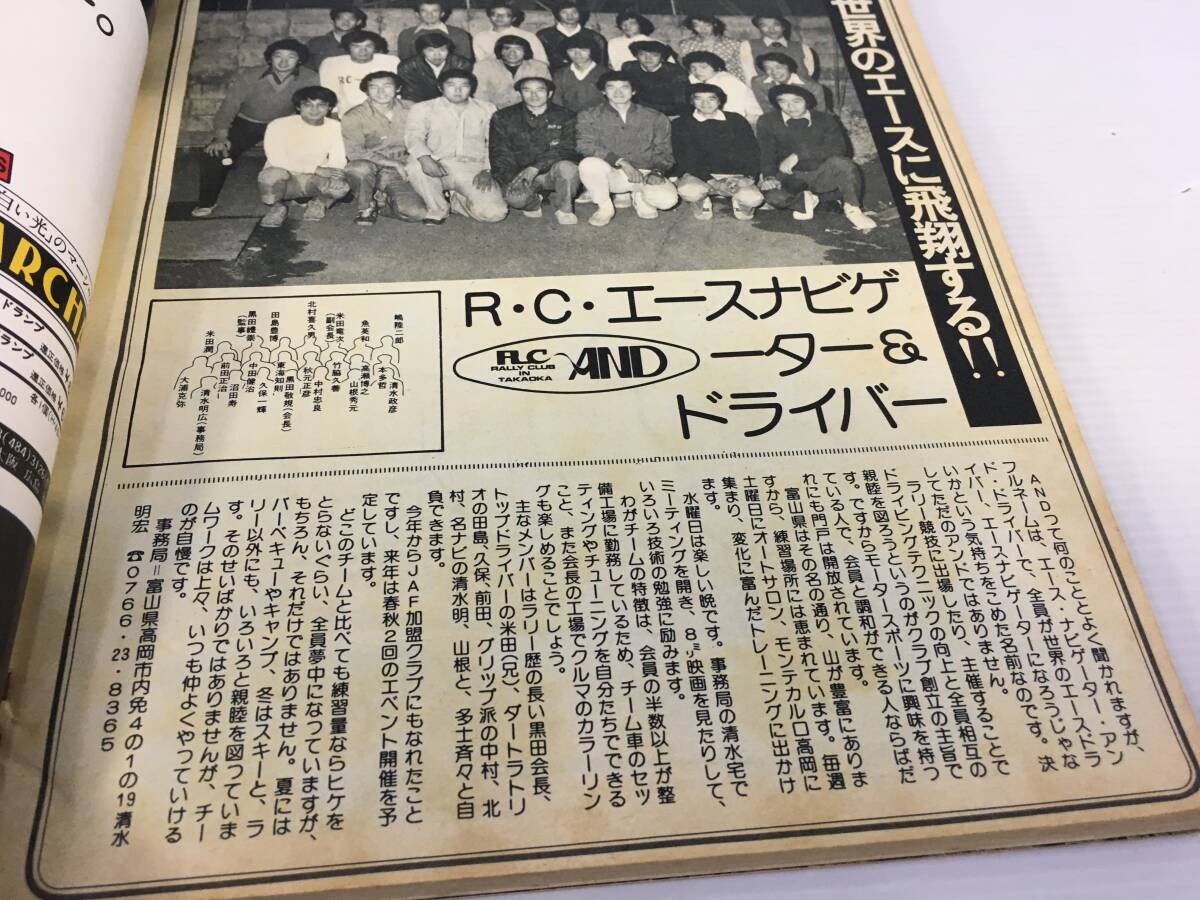 世界のエースに飛翔する!!
R・C・エースナビゲ
ーター&
ドライバー
R.C
RALLY CLUB
IN
TAKAOKA
AND
嶋陸二郎
魚美和
米田竜次
(副会長)
北村喜久男
田島豊博
黒田禮崇
(監事)
米田潤一
清水政彦
本多哲
山根秀元
高瀬博之
竹脇久善
中村忠良
秋元正彦
黒田敬規(会長)
東海知則
久保一輝
中田健治
沼田寿
前田正治
清水明広(事務局)
大浦克弥
ANDって何のこととよく聞かれますが、
フルネームは、エース・ナビゲーター・アン
ド・ドライバーで、全員が世界のエースドラ
イバー、エースナビゲーターになろうじゃな
いかという気持ちをこめた名前なのです。決
してただのアンドではありません。
ラリー競技に出場したり、主催することで
ドライビングテクニックの向上と全員相互の
親睦を図ろうというのがクラブ創立の主旨で
す。ですからモータースポーツに興味を持っ
ている人で、会員と調和ができる人ならばだ
れにも門戸は開放されています。
富山県はその名の通り、山が豊富にありま
すから、練習場所には恵まれています。毎週
土曜日にオートサロン、モンテカルロ高岡に
集まり、変化に富んだトレーニングに出かけ
ます。
水曜日は楽しい晩です。事務局の清水宅で
ミーティングを開き、8㍉映画を見たりして、
いろいろ技術の勉強に励みます。
わがチームの特徴は、会員の半数以上が整
備工場に勤務しているため、チーム車のセッ
ティングやチューニングを自分たちでできる
こと、また会長の工場でクルマのカラーリン
グも楽しめることでしょう。
主なメンバーはラリー歴の長い黒田会長、
トップドライバーの米田(兄)、ダートラトリ
オの田島、久保、前田、グリップ派の中村、北
村、名ナビの清水明、山根と、多士斉々と自
負できます。
今年からJAF加盟クラブにもなれたこと
ですし、来年は春秋2回のエベント開催を予
定しています。
どこのチームと比べても練習量ならヒケを
とらないぐらい、全員夢中になっていますが、
もちろん、それだけではありません。夏には
バーベキューやキャンプ、冬はスキーと、ラ
リー以外にも、いろいろと親睦を図っていま
す。そのせいばかりではありませんが、チー
ムワークは上々、いつも仲よくやっていける
のが自慢です。
事務局=富山県高岡市内免4の1の19清水
明宏 ☎0766・23・8365
白い光」のマーシ
ARCH
ドランプ
ランプ
適正価格
適正価格
000
(484)